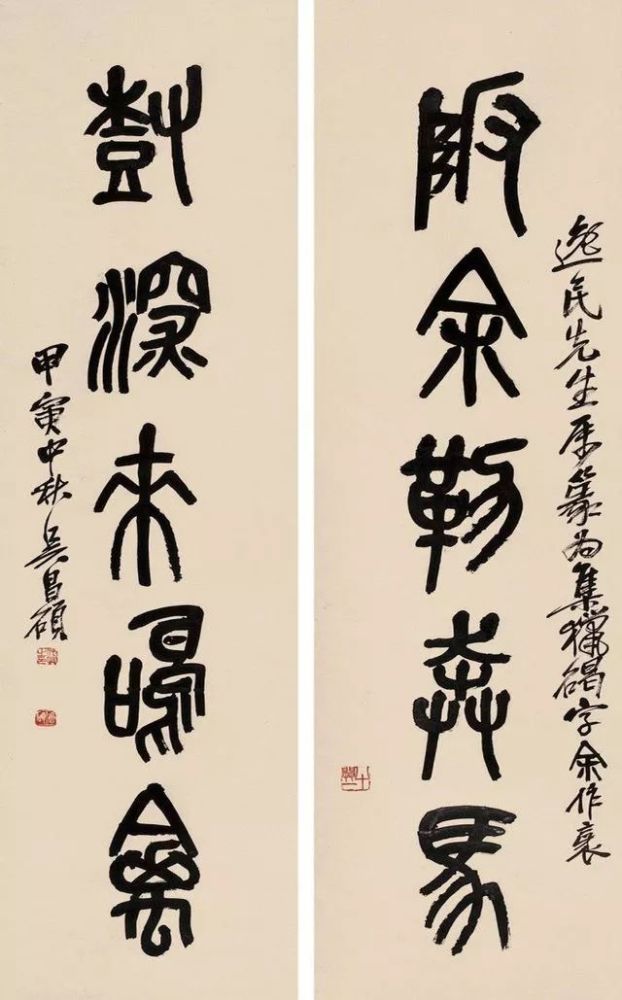 阪余勒奔馬
逸民先生属篆為集獵碣字余作衺
樹深來鳴禽
甲寅中秋吳昌碩